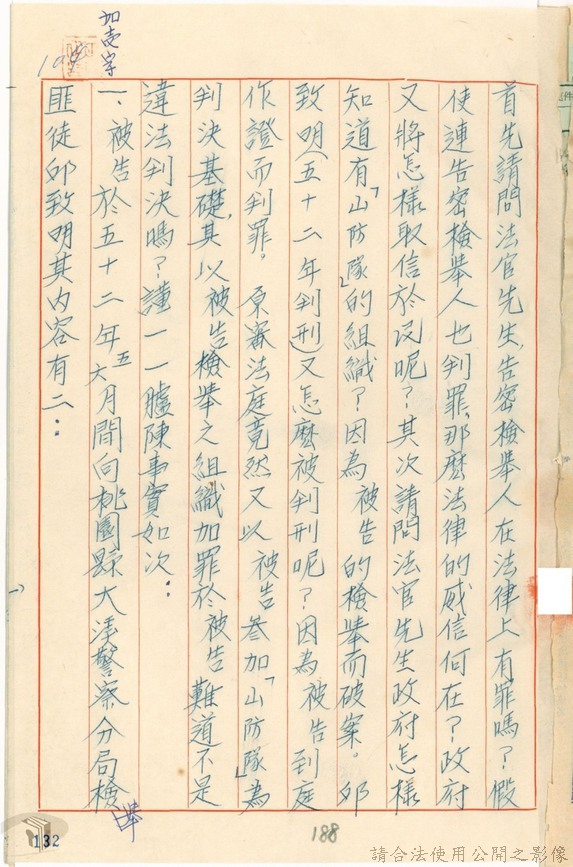 首先請問法官先生,告密檢舉人在法律上有罪嗎?假
使連告密檢舉人也判罪,那麼法律的威信何在?政府
又將怎樣取信於民呢?其次請問法官先生政府怎樣
知道有「山防隊」的組織?因為 被告 的檢舉而破案。邱
致明(五十二年判刑)又怎麼被判刑呢?因為 被告 到庭
作證而判罪。原審法庭竟然又以 被告 參加「山防隊」為
判決基礎,其以 被告 檢舉之組織加罪於 被告 難道不是
違法判決嗎?謹一一臚陳事實如次:
一、被告於五十二年五六月間向桃園縣大溪警察分局檢舉
匪徒邱致明其內容有二:
加壹字
132
188
請合法使用公開之影像